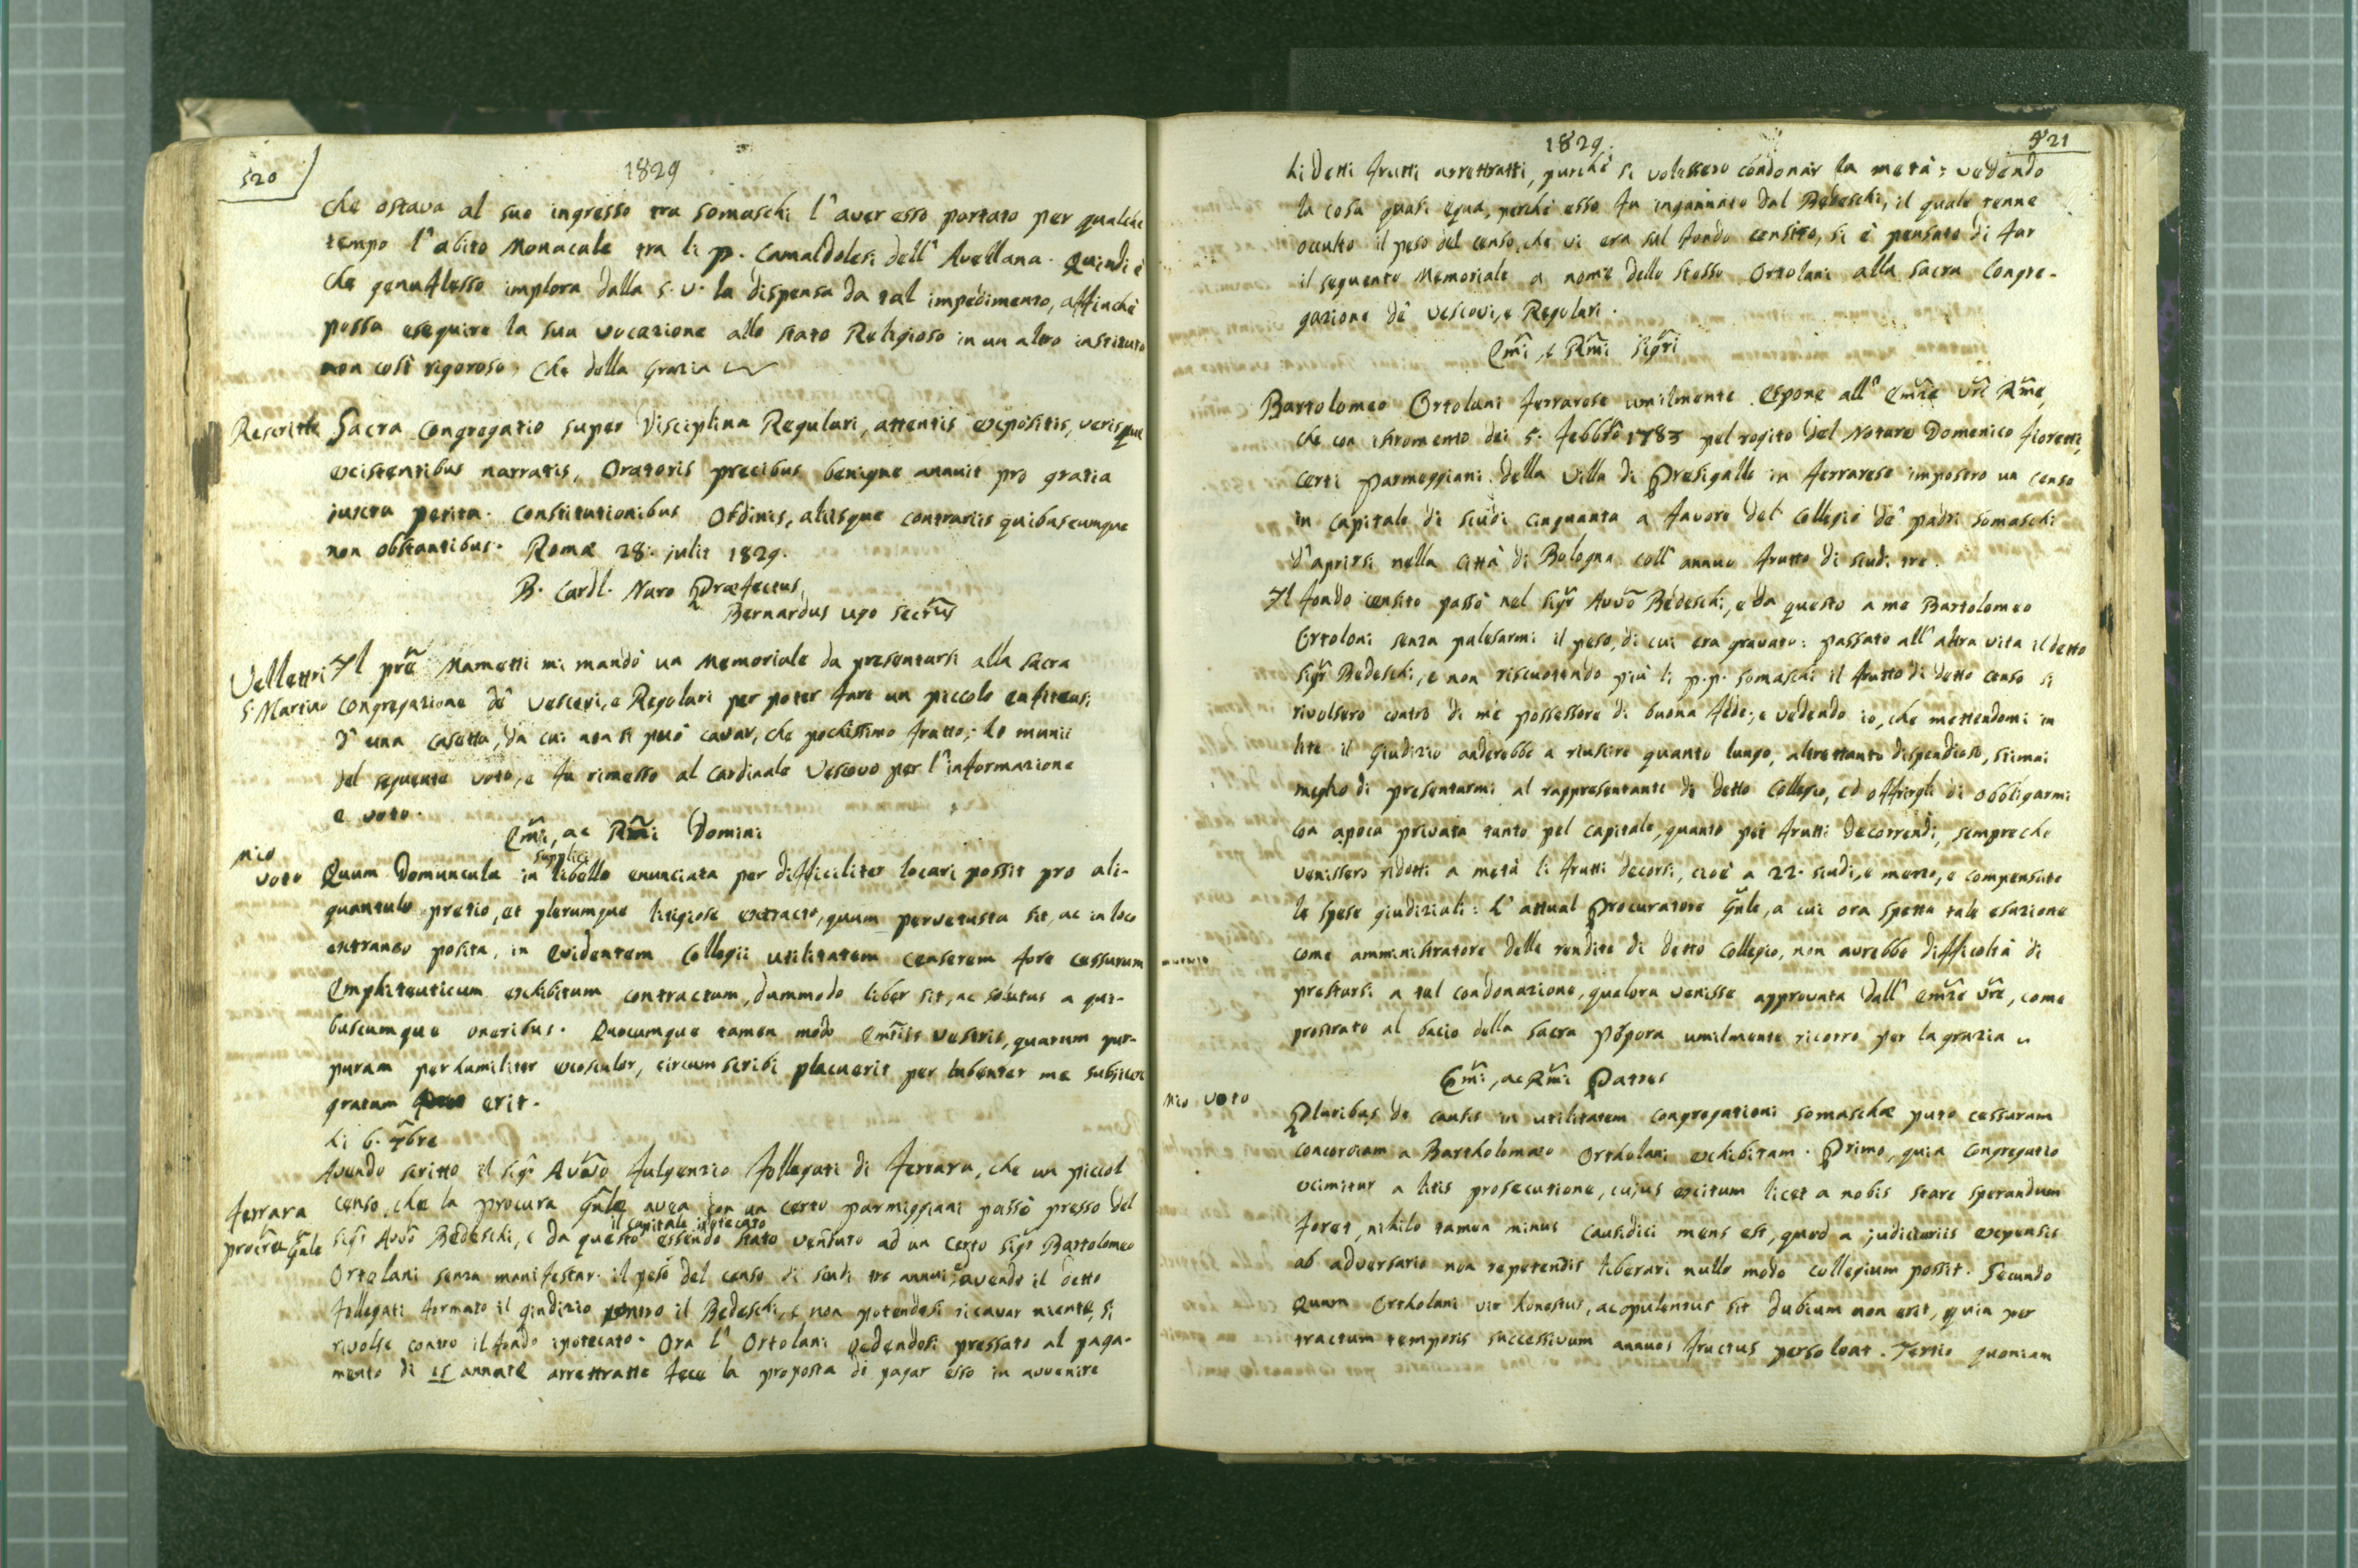 520
1829
che ostava al suo ingresso tra Somaschi l'aver esso portato per qualche
tempo l'abito Monacale tra li p. Camaldolesi dell'Avellana. Quindi è
che genuflesso implora dalla S. V. la dispensa da tal impedimento, affinchè
possa eseguire la sua vocazione allo stato Religioso in un altro instituto
non così rigoroso, Che della Grazia
Rescritto Sacra Congregatio super Disciplina Regulari, attentis expositis, verisque
existentibus narratis, Oratoris precibus benigne annuit pro gratia
juxta petita. Constitutionibus Ordinis, aliisque contrariis quibuscumque
non obstantibus. Romæ 28. julii 1829.
B. Cardl. Naro Præfectus
Bernardus Ugo Secrius
Velletri Il pre Mametti mi mandò un Memoriale da presentarsi alla Sacra
S. Martino Congregazione de' Vescovi, e Regolari per poter fare un piccolo enfiteusi
d'una casetta, da cui non si può cavar, che pochissimo frutto; lo munii
del seguente voto, e fu rimesso al Cardinale Vescovo per l'informazione
e voto.
Emi, ac Rmi Domini
mio
voto Quum Domuncula in supplici libello enunciata per difficiliter locari possit pro ali-
quantulo pretio, et plerumque litigiose extracto, quum pervetusta sit, ac in loco
extraneo posita, in evidentem Collegii utilitatem censerem fore cessurum
Emphiteuticum exhibitum contractum, dummodo liber sit, ac solutus a qui-
buscumque oneribus. Quocumque tamen modo Emiis Vestris, quarum pur-
puram perhumiliter exosculor, circumscribi placuerit per lubenter me subjicere
gratum erit.
Li 6. 7bre
Avendo scritto il sigr Avvo Fulgenzio Follegati di Ferrara, che un piccol
Ferrara censo, che la procura Gnle avea con un certo parmiggiani passò presso del
procra Gnle sigr Avvo Bedeschi, e da questo essendo il capitale ipotecato stato venduto ad un certo sigr Bartolomeo
Ortolani senza manifestar il peso del censo di scudi tre annui; avendo il detto
Follegati formato il giudizio contro il Bedeschi, e non potendosi ricavar niente, si
rivolse contro il fondo ipotecato. Ora l'Ortolani vedendosi pressato al paga-
mento di 15 annate arrettratte fece la proposta di pagar esso in avvenire
521
1829.
li detti frutti arrettratti, purchè si volessero condonar la metà: vedendo
la cosa quasi equa, perchè esso fu ingannato dal Bedeschi, il quale tenne
occulto il peso del censo, che vi era sul fondo censito, si è pensato di far
il seguente Memoriale a nome dello stesso Ortolani alla Sacra Congre-
gazione de' Vescovi, e Regolari.
Emi, e Rmi Sigri
Bartolomeo Ortolani Ferrarese umilmente espone all' Emze Vre Rme,
che con istromento dei 5. Febbro 1783 pel rogito del Notaro Domenico Fioretti,
certi Parmeggiani della Villa di Presigallo in Ferrarese imposero un censo
in capitale di scudi cinquanta a favore del Collegio de' padri Somaschi
d'aprirsi nella Città di Bologna coll'annuo frutto di scudi tre.
Il fondo censito passò nel sigr Avvo Bedeschi, e da questo a me Bartolomeo
Ortolani senza palesarmi il peso, di cui era gravato: passato all'altra vita il detto
sigr Bedeschi, e non riscuotendo più li p.p. Somaschi il frutto di detto censo si
rivolsero contro di me possessore di buona fede, e vedendo io, che mettendomi in
lite il giudizio anderebbe a riuscire quanto lungo, altrettanto dispendioso, stimai
meglio di presentarmi al rappresentante di detto Collegio, ed offrirgli di obbligarmi
con apoca privata tanto pel capitale, quanto pei frutti decorrendi, sempre che
venissero ridotti a metà li frutti decorsi, cioè a 22. scudi, e mezzo, e compensate
le spese giudiziali: L'attual Procuratore Gnle, a cui ora spetta tale esazione
come amministratore delle rendite di detto Collegio, non avrebbe difficoltà di
prestarsi a tal condonazione, qualora venisse approvata dall' Emze Vre, come
prostrato al bacio della Sacra Pòpora umilmente ricorro per la grazia
Emi, ac Rmi Patres
mio voto Pluribus de causis in utilitatem congregationi Somaschæ puto cessuram
concordiam a Bartholomæo Ortholani exhibitam. Primo, quia Congregatio
eximitur a litis prosecutione, cujus exitum licet a nobis stare sperandum
foret, nihilo tamen minus causidici mens est, quod a judiciariis expensis
ab adversario non repetendis liberari nullo modo collegium possit. Secundo
Quum Ortholani vir honestus, ac opulentus sit dubium non erit, quin per
tractum temporis successivum annuos fructus persolvat. Tertio quoniam